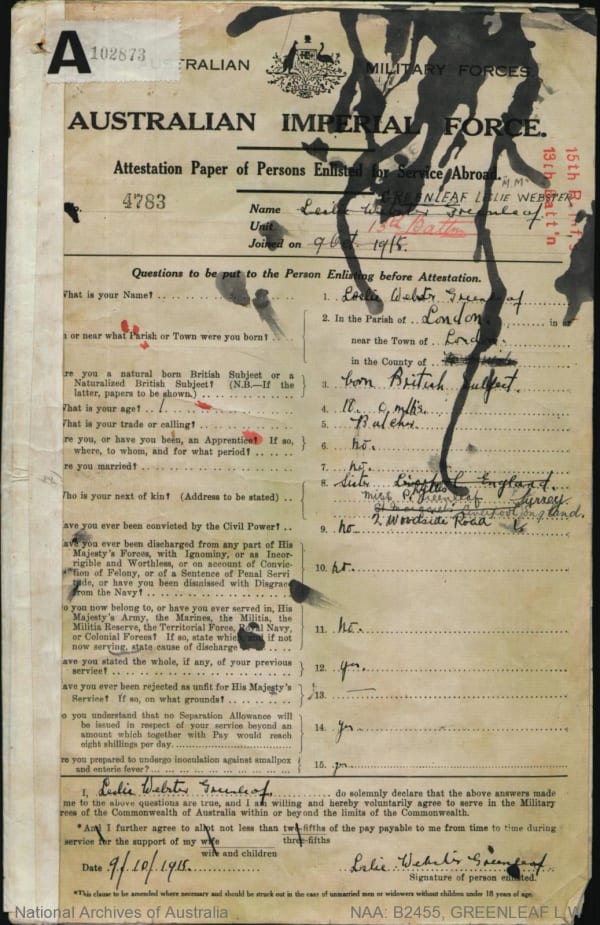 A 102873
USTRALIAN MILITARY FORCES.
AUSTRALIAN IMPERIAL FORCE.
Attestation Paper of Persons Enlisted for Service Abroad.
15th Batt'n
13th Batt'n
"M.M"
GREENLEAF LESLIE WEBSTER
4783
Name Leslie Webster Greenleaf.
Unit 13th Battn
Joined on 9 Oct. 1915.
Questions to be put to the Person Enlisting before Attestation.
What is your Name? 1. Leslie Webster Greenleaf
n or near what Parish or Town were you born? 2. In the Parish of London. in or
near the town of London.
in the County of
re you a natural born British Subject or a
Naturalized British Subject? (N.B.—If the
latter, papers to be shown.) 3. born British Subject.
What is your age? 4. 18. 0 mths.
What is your trade or calling? 5. Butcher
re you, or have you been, an Apprentice? If so,
where, to whom, and for what period? 6. No.
re you married? 7. No.
Who is your next of kin? (Address to be stated) 8. Sister Liverpool England.
Miss P. Greenleaf Surrey
St Margarets Liverpool England.
2. Woodside Road
ave you ever been convicted by the Civil Power? 9. No
ave you ever been discharged from any part of His
Majesty's Forces, with Ignominy, or as Incor-
rigible and Worthless, or on account of Convic-
tion of Felony, or of a Sentence of Penal Servi
tude, or have you been dismissed with Disgrace
from the Navy? 10. No.
o you now belong to, or have you ever served in, His
Majesty's Army, the Marines, the Militia, the
Militia Reserve, the Territorial Force, Royal Navy,
or Colonial Forces? If so, state which, and if not
now serving, state cause of discharge 11. No.
ave you stated the whole, if any, of your previous
service? 12. Yes.
ave you ever been rejected as unfit for His Majesty's
Service? If so, on what grounds? 13. —
o you understand that no Separation Allowance will
be issued in respect of your service beyond an
amount which together with Pay would reach
eight shillings per day. 14. Yes
re you prepared to undergo inoculation against smallpox
and enteric fever? 15. yes
I, Leslie Webster Greenleaf do solemnly declare that the above answers made
me to the above questions are true, and I am willing and hereby voluntarily agree to serve in the Military
rces of the Commonwealth of Australia within or beyond the limits of the Commonwealth.
*And I further agree to allot not less than two-fifths of the pay payable to me from time to time during
service for the support of my wife three-fifths
wife and children
Date 9/10/1915. Leslie Webster Greenleaf
Signature of person enlisted.
*This clause to be amended where necessary and should be struck out in the case of unmarried men or widowers without children under 18 years of age.
National Archives of Australia NAA: B2455, GREENLEAF L W